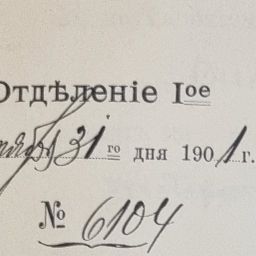 Отдѣленіе Iое
31го дня 1901 г.
№ 6104